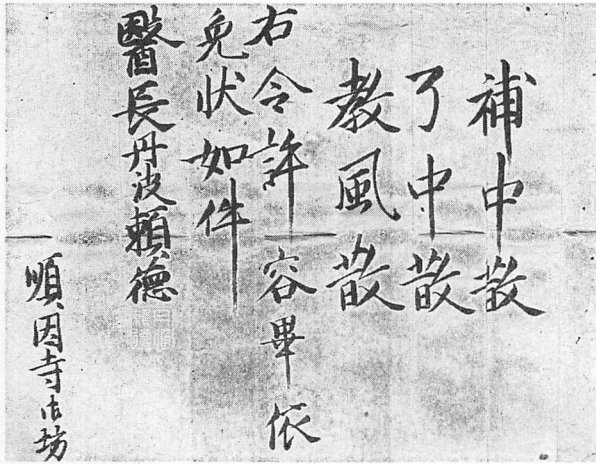 補中散
了中散
教風散
右令許容畢依
免状如件
醫長丹波頼德
順因寺御坊